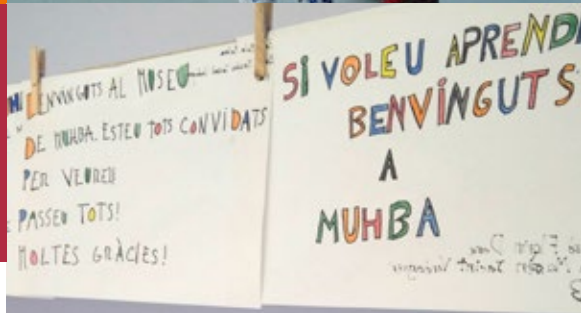 BENVINGUTS AL MUSEU
DE MUHBA. ESTEU TOTS CONVIDATS
PER VEURE!!
PASSEU TOTS!
MOLTES GRÀCIES!
SI VOLEU APREND
BENVINGUTS
A
MUHBA